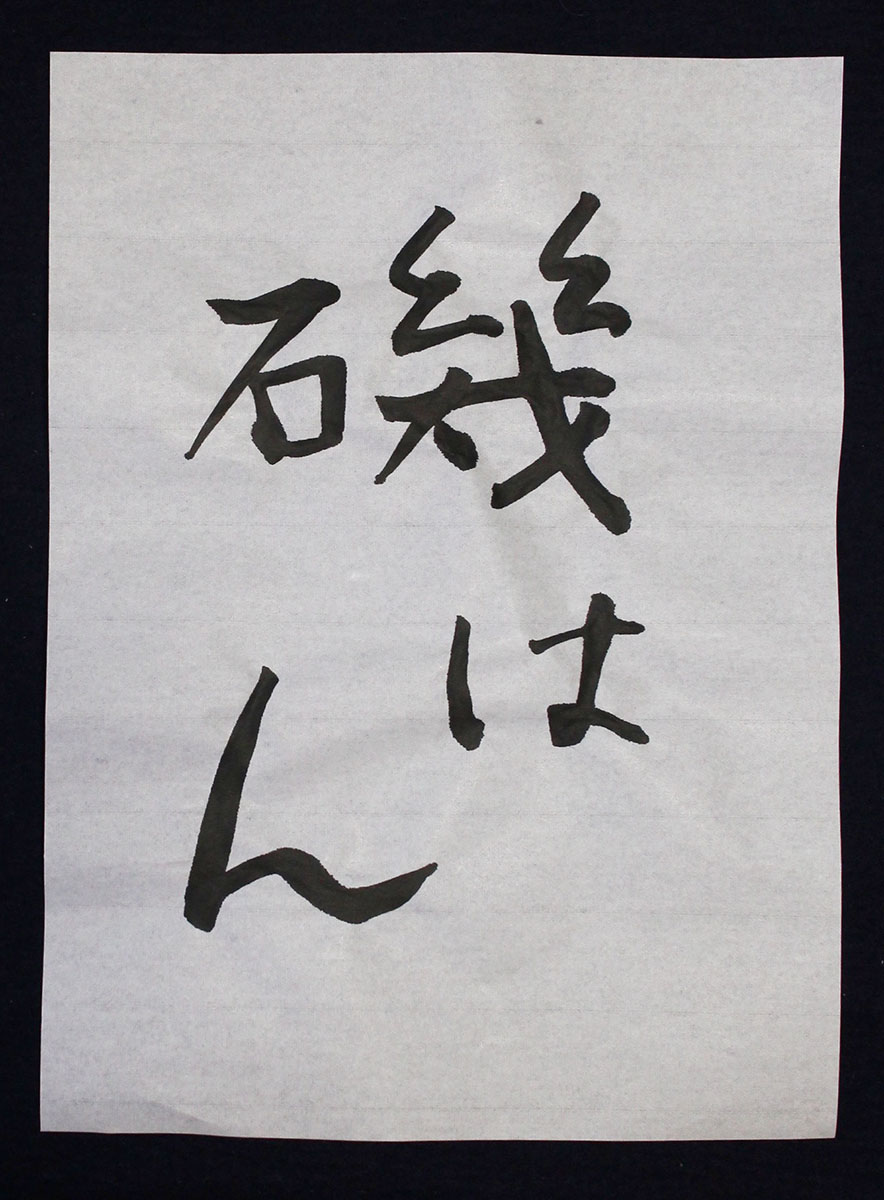 磯はん